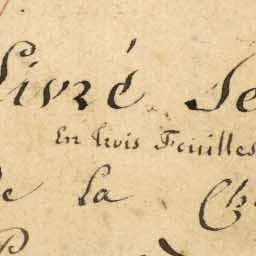 Livré Se
En trois Feuilles
De la Ch